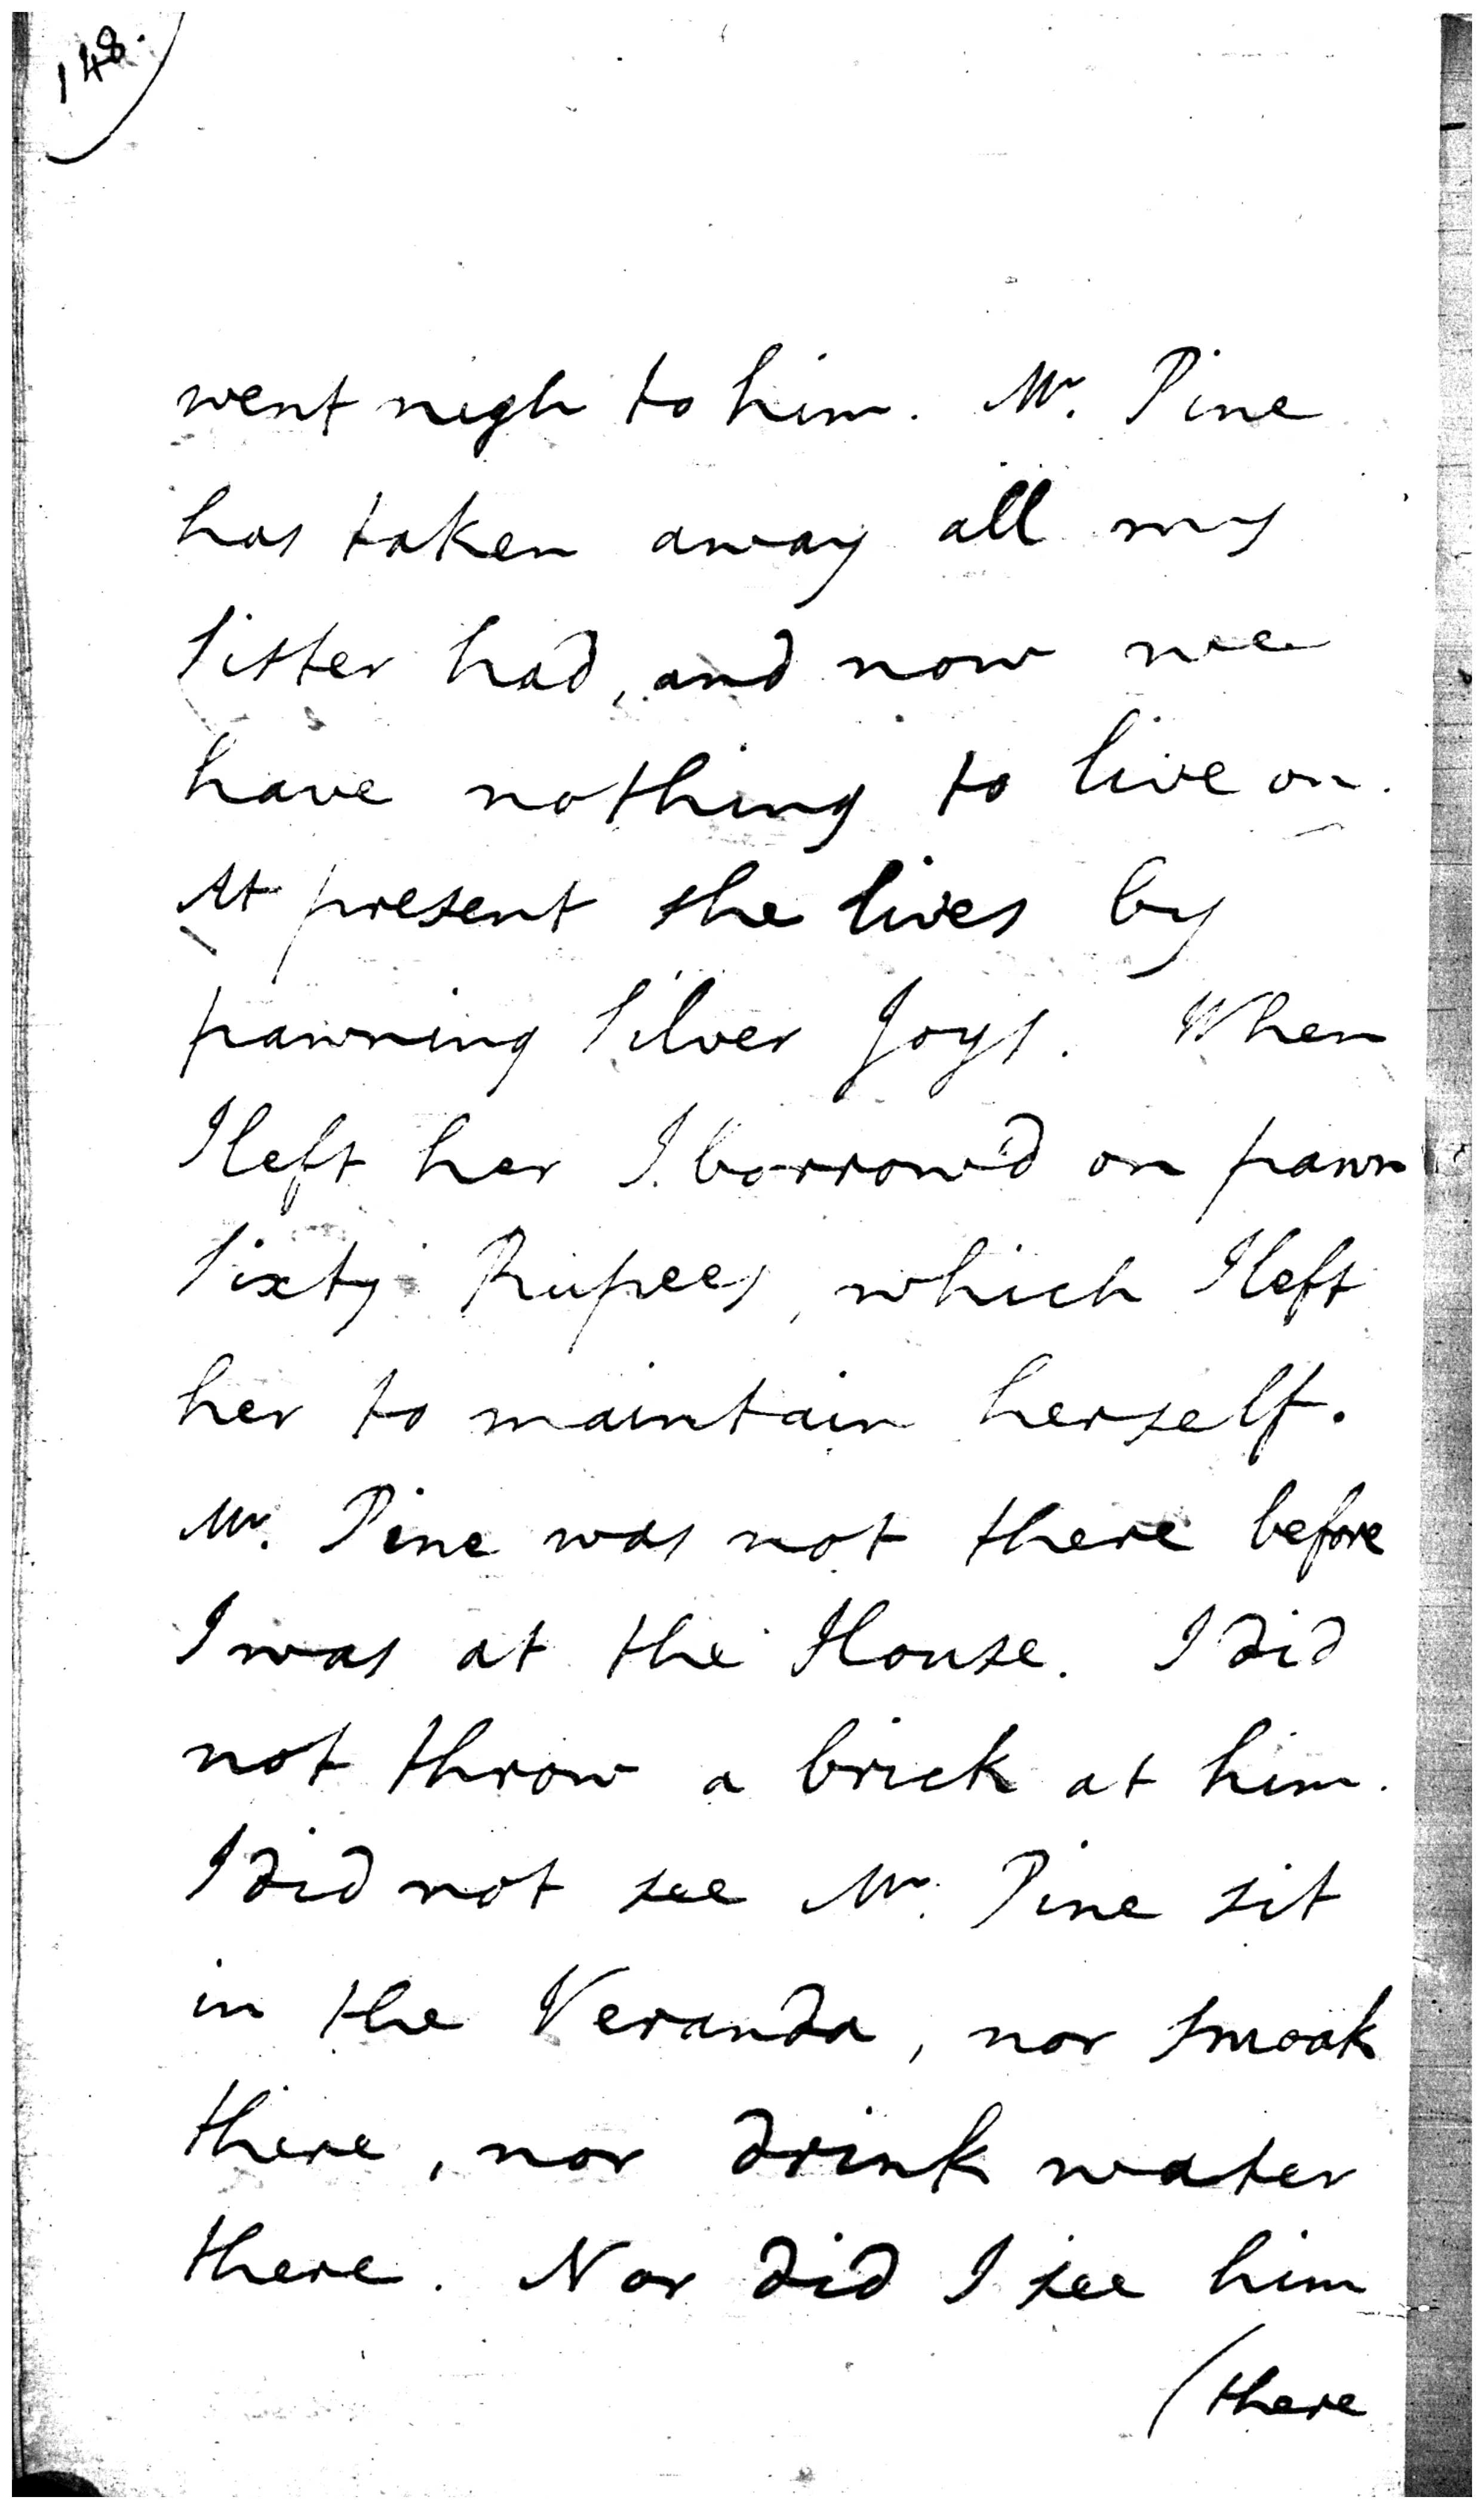 148.
went nigh to him. Mr. Pine
has taken away all my
Sister had, and now we
have nothing to live on.
At present she lives by
pawning Silver Joys. When
I left her I borrow'd on pawn
Sixty Rupees, which I left
her to maintain herself.
Mr. Pine was not there before
I was at the House. I did
not throw a brick at him.
I did not see Mr. Pine sit
in the Veranda, nor smoak
there, nor drink water
there. Nor did I see him
(there